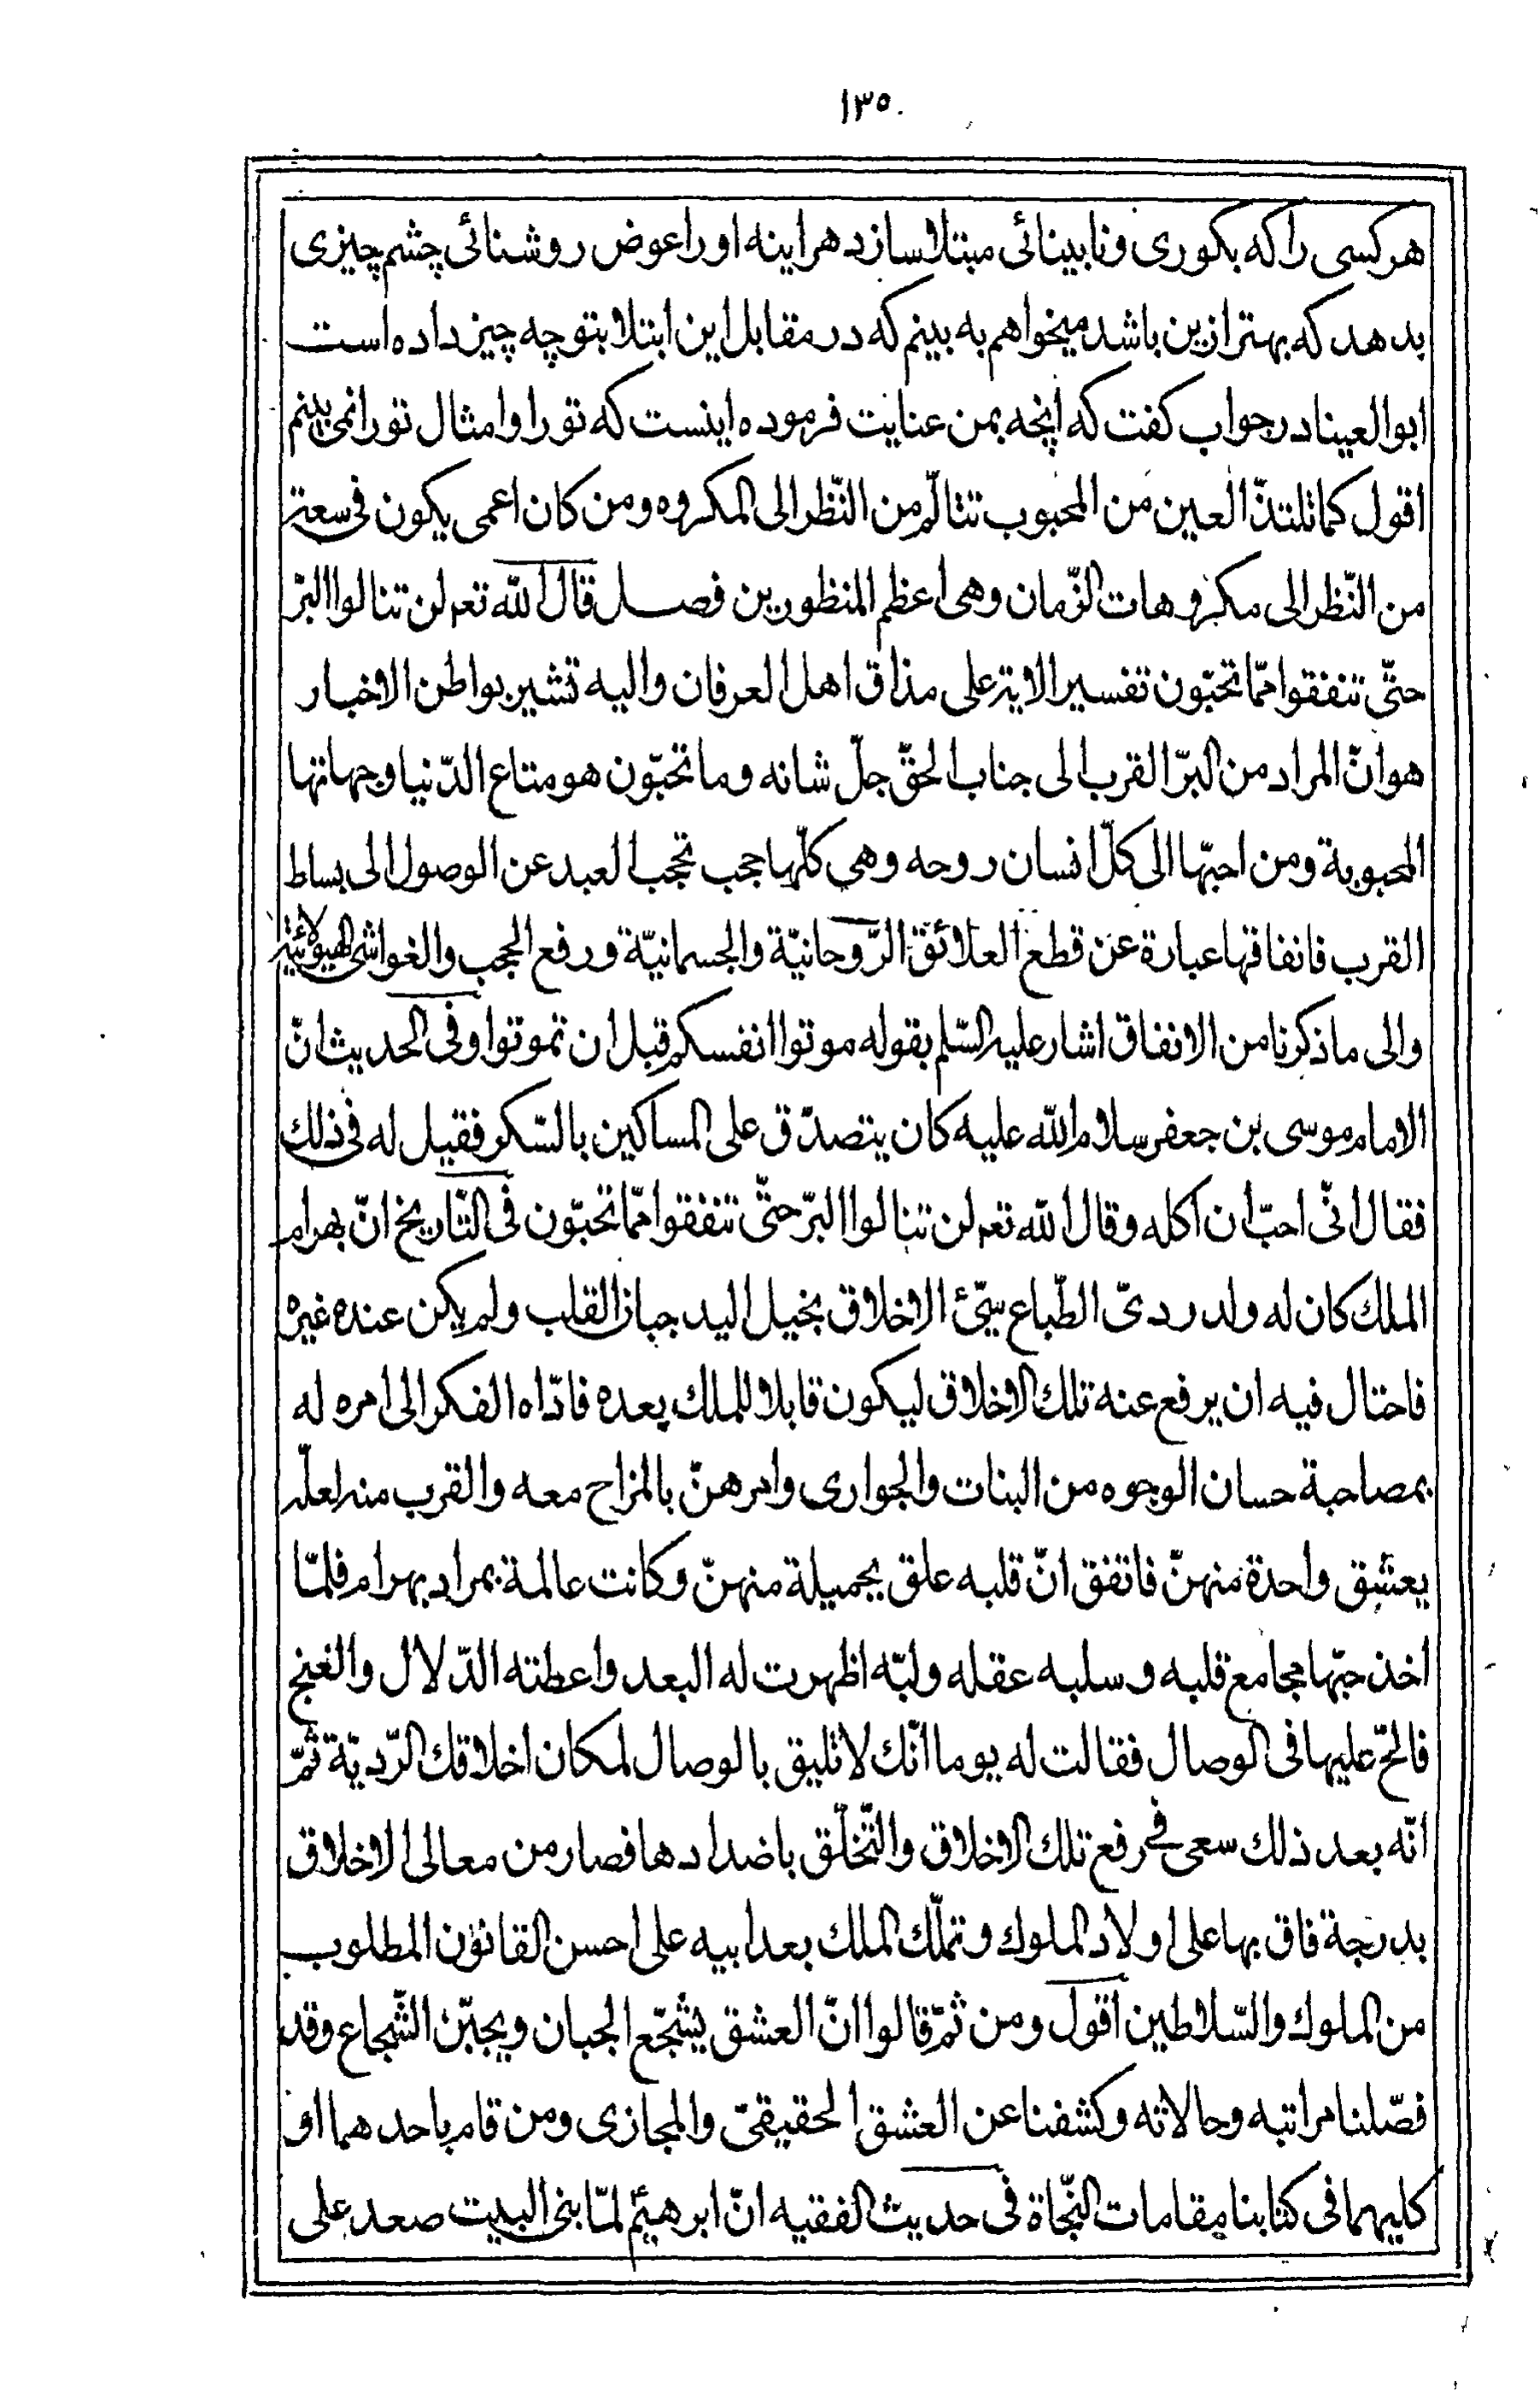 ١٣٥
هر کسی را که بکوری و نابینائی مبتلا سازد هراینه او را عوض روشنائی چشم چیزی
بدهد که بهتر ازین باشد میخواهم به بینم که در مقابل این ابتلا بتو چه چیز داده است
ابو العینا در جواب کفت که انچه بمن عنایت فرموده اینست که تو را و امثال تو را نمی بینم
اقول كما تلتذّ العين من المحبوب تتالّم من النّظر الى المكروه ومن كان اعمى يكون فى سعة
من النّظر الى مكروهات الزّمان وهى اعظم المنظورين فصل قال الله تعم لن تنالوا البرّ
حتّى تنفقوا ممّا تحبّون تفسير الاية على مذاق اهل العرفان واليه تشير بواطن الاخبار
هو انّ المراد من البرّ القرب الى جناب الحقّ جلّ شانه وما تحبّون هو متاع الدّنيا وجهاتها
المحبوبة ومن احبّها الى كلّ انسان روحه وهى كلّها حجب تحجب العبد عن الوصول الى بساط
القرب فانفاقها عبارة عن قطع العلائق الرّوحانيّة والجسمانيّة ورفع الحجب والغواشى الهيولائيّة
والى ما ذكرنا من الانفاق اشار عليه السّلم بقوله موتوا انفسكم قبل ان تموتوا وفى الحديث انّ
الامام موسى بن جعفر سلام الله عليه كان يتصدّق على المساكين بالسّكر فقيل له فى ذلك
فقال انّى احبّ ان اكله وقال الله تعم لن تنالوا البرّ حتّى تنفقوا ممّا تحبّون فى التّاريخ انّ بهرام
الملك كان له ولد ردىّ الطّباع سيّئ الاخلاق بخيل اليد جبان القلب ولم يكن عنده غيره
فاحتال فيه ان يرفع عنه تلك الاخلاق ليكون قابلا للملك بعده فادّاه الفكر الى امره له
بمصاحبة حسان الوجوه من البنات والجوارى وامرهنّ بالمزاح معه والقرب منه لعلّه
يعشق واحدة منهنّ فاتفق انّ قلبه علق بجميلة منهنّ وكانت عالمة بمراد بهرام فلمّا
اخذ حبّها مجامع قلبه وسلبه عقله ولبّه اظهرت له البعد واعطته الدّلال والغنج
فالحّ عليها فى الوصال فقالت له يوما انّك لا تليق بالوصال لمكان اخلاقك الرّديّة ثمّ
انّه بعد ذلك سعى فى رفع تلك الاخلاق والتّخلّق باضدادها فصار من معالى الاخلاق
بدرجة فاق بها على اولاد الملوك وتملّك الملك بعد ابيه على احسن القانون المطلوب
من الملوك والسّلاطين اقول ومن ثمّ قالوا انّ العشق يشجّع الجبان ويجبّن الشّجاع وقد
فصّلنا مراتبه وحالاته وكشفنا عن العشق الحقيقىّ والمجازى ومن قام باحدهما او
كليهما فى كتابنا مقامات النّجاة فى حديث الفقيه انّ ابرهيم لمّا بنى البيت صعد على